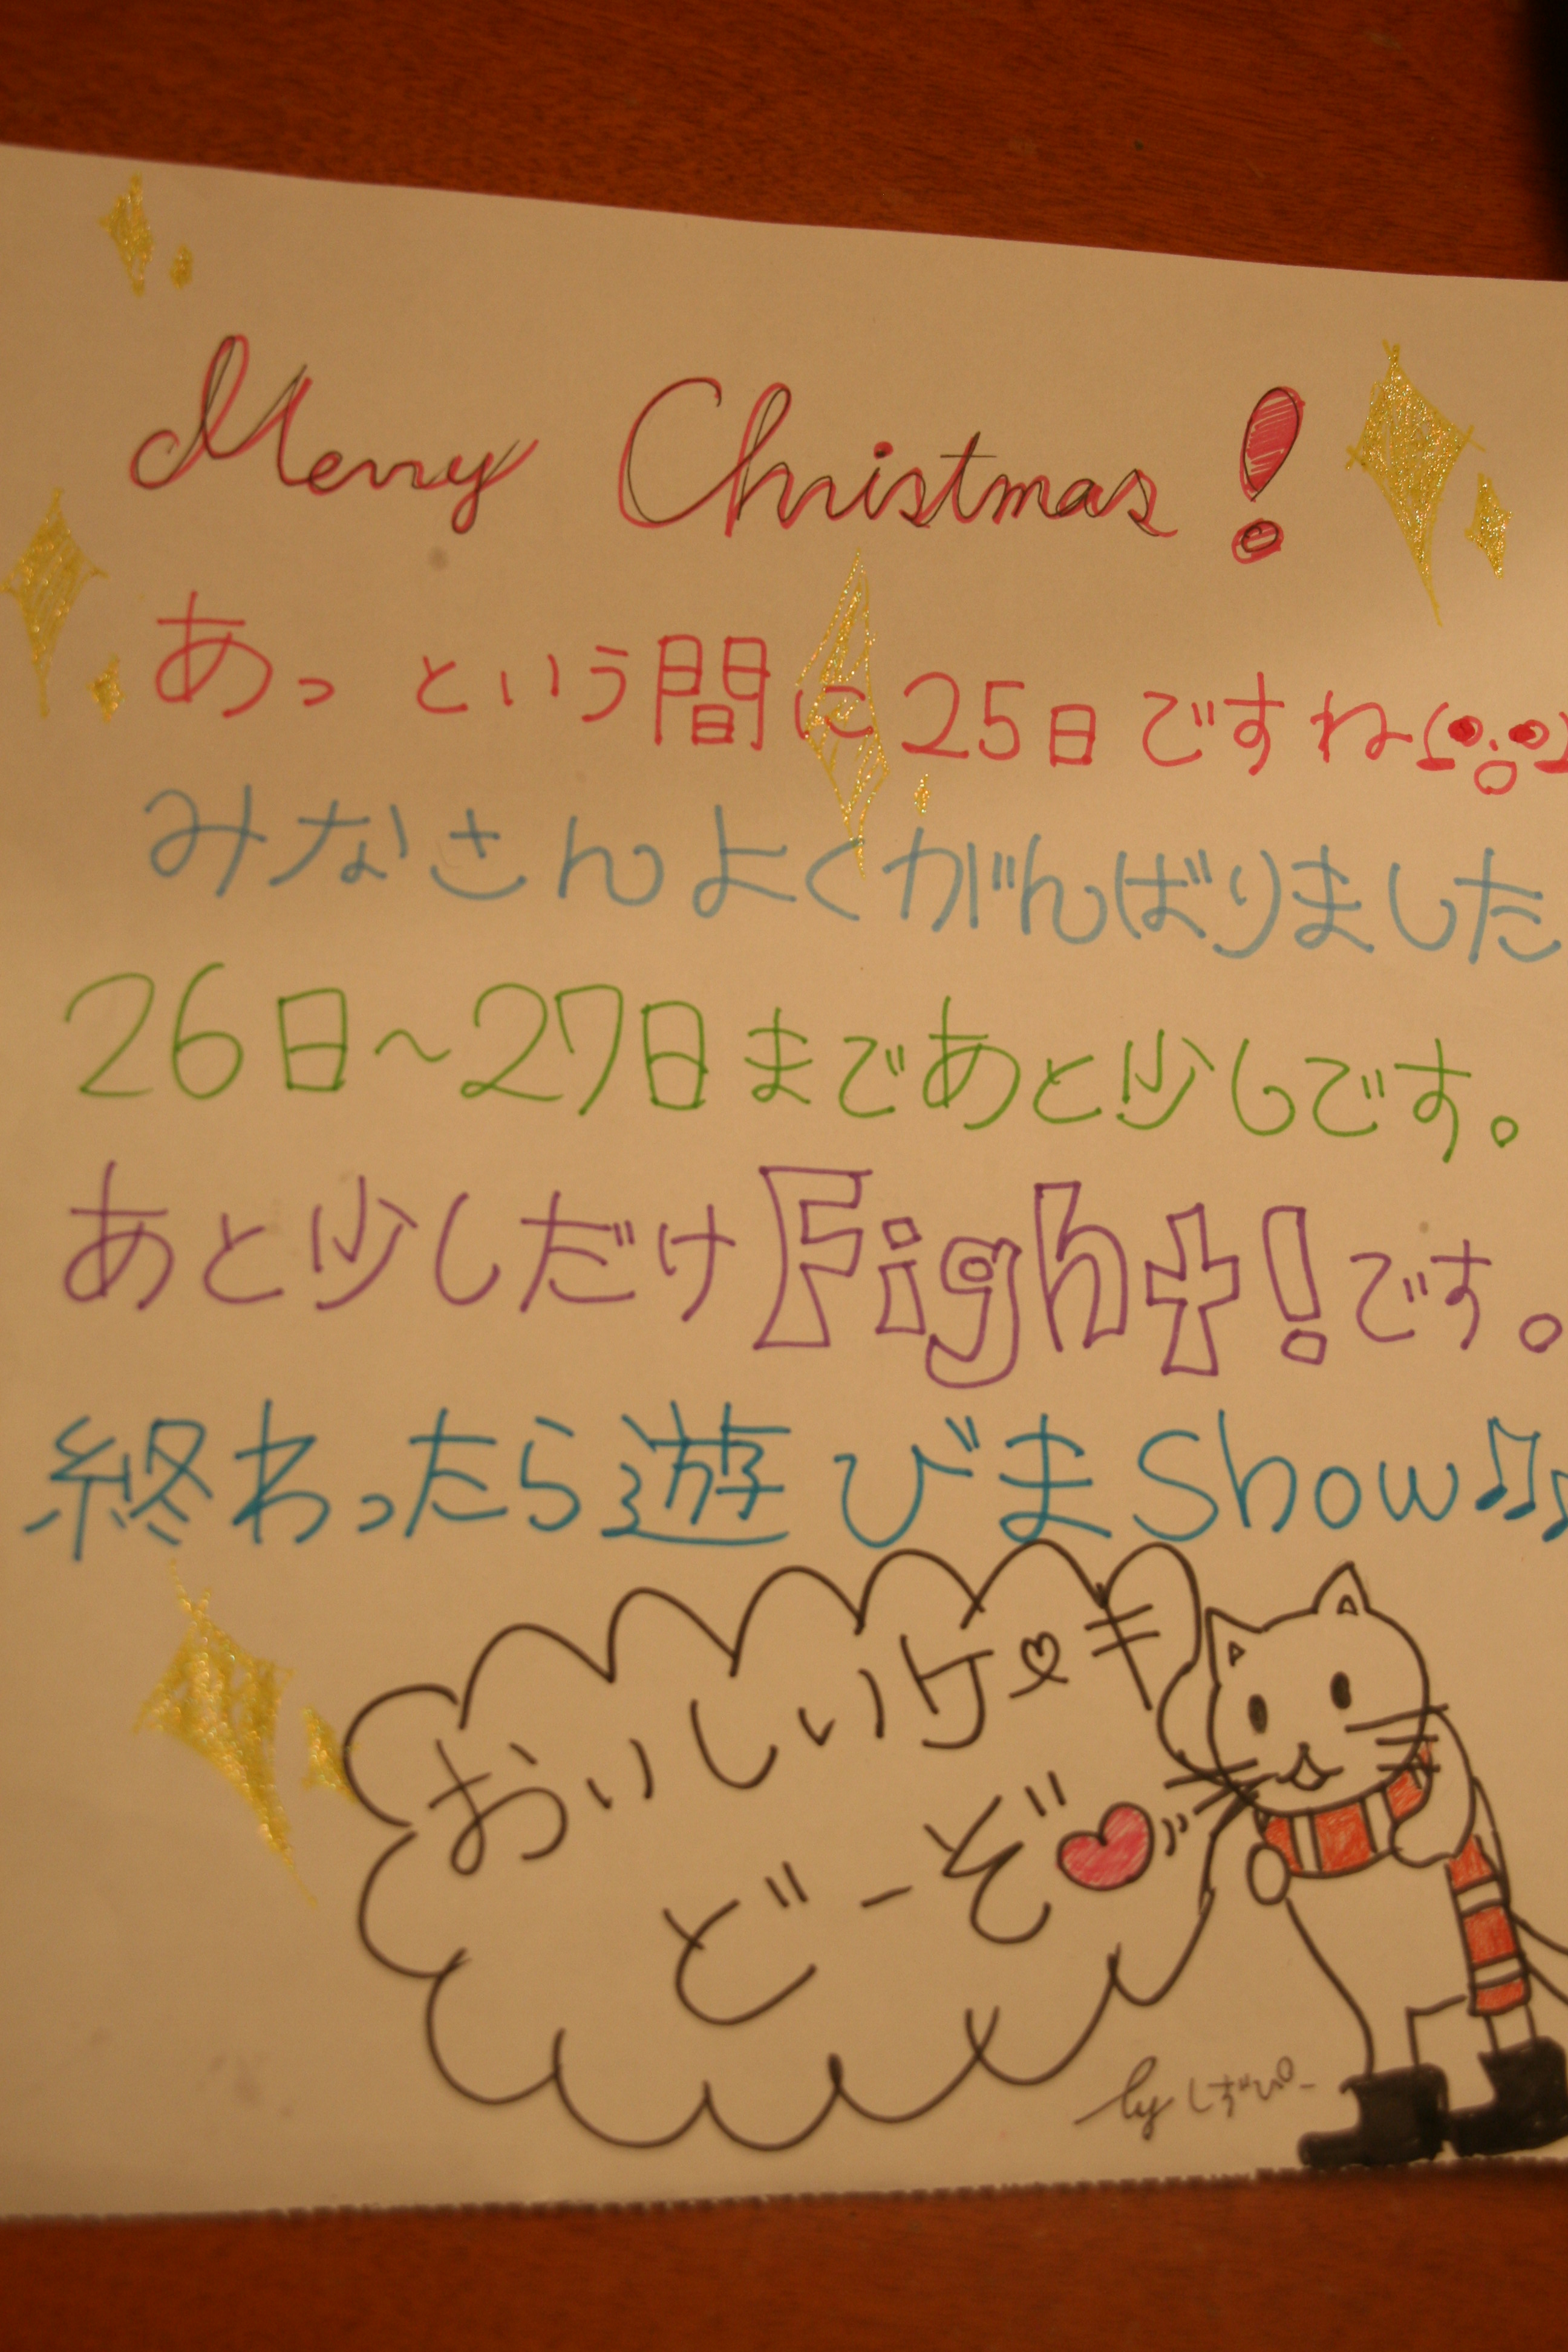 Merry Christmas!
あっという間に25日ですね
みなさんよくがんばりました
26日~27日まであと少しです。
あと少しだけFight!です。
終わったら遊びまShow♫♪
おいしいケーキ
どーぞ♥
by しずぴー